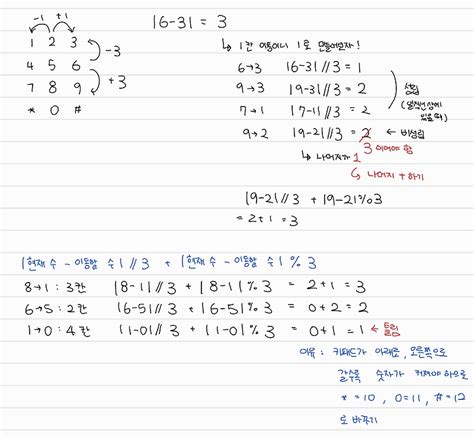 -1 +1
1 2 3
-3
4 5 6
+3
7 8 9
* 0 #
|6-3| = 3
↳ 1칸 이동이니 1로 만들어보자!
6→3 |6-3|//3 = 1
9→3 |9-3|//3 = 2
7→1 |7-1|//3 = 2
성립
(일직선상에 있을 때)
9→2 |9-2|//3 = 2 ← 비성립
3 이어야 함
↳ 나머지가 1
↳ 나머지 + 하기
|9-2|//3 + |9-2|%3
= 2+1 = 3
|현재 수 - 이동할 수|//3 + |현재 수 - 이동할 수|%3
8→1 : 3칸 |8-1|//3 + |8-1|%3 = 2+1 = 3
6→5 : 2칸 |6-5|//3 + |6-5|%3 = 0+2 = 2
1→0 : 4칸 |1-0|//3 + |1-0|%3 = 0+1 = 1 ← 틀림
이유 : 키패드가 아래로, 오른쪽으로
갈수록 숫자가 커져야 하므로
* = 10, 0 = 11, # = 12
로 바꾸기